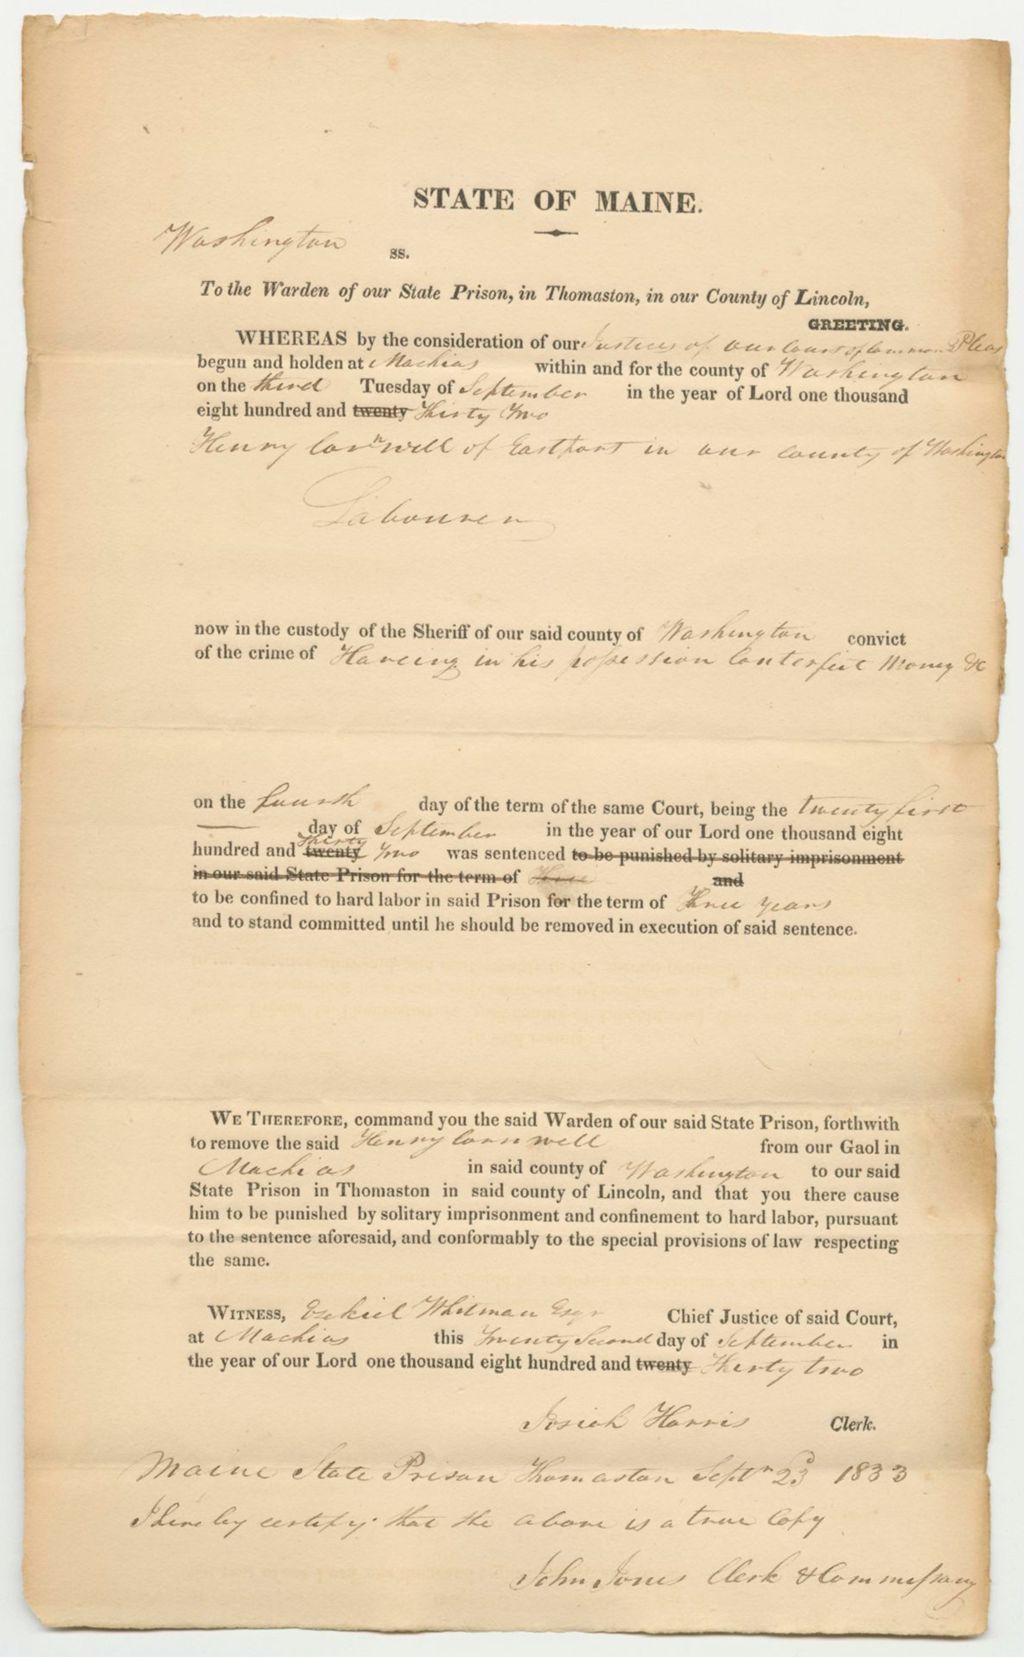 STATE OF MAINE.
Washington
ss.
To the Warden of our State Prison, in Thomaston, in our County of Lincoln,
GREETING.
WHEREAS by the consideration of our Justices of our Court of Common Pleas
begun and holden at Machias within and for the county of Washington
on the third Tuesday of September in the year of Lord one thousand
eight hundred and twenty Thirty Two
Henry Cornwell of Eastport in our county of Washington
Labourer
now in the custody of the Sheriff of our said county of Washington convict
of the crime of Haveing in his possession Conterfeit Money &c
on the fourth day of the term of the same Court, being the twenty first
day of September in the year of our Lord one thousand eight
hundred and twenty Thirty Two was sentenced to be punished by solitary imprisonment
in our said State Prison for the term of Three and
to be confined to hard labor in said Prison for the term of Three years
and to stand committed until he should be removed in execution of said sentence.
WE THEREFORE, command you the said Warden of our said State Prison, forthwith
to remove the said Henry Cornwell from our Gaol in
Machias in said county of Washington to our said
State Prison in Thomaston in said county of Lincoln, and that you there cause
him to be punished by solitary imprisonment and confinement to hard labor, pursuant
to the sentence aforesaid, and conformably to the special provisions of law respecting
the same.
WITNESS, Ezekiel Whitman Esqr Chief Justice of said Court,
at Machias this Twenty Second day of September in
the year of our Lord one thousand eight hundred and twenty Thirty two
Josiah Harris Clerk.
Maine State Prison Thomaston Septr 23d 1833
I hereby certify that the above is a true Copy
John Jones Clerk & Commissary